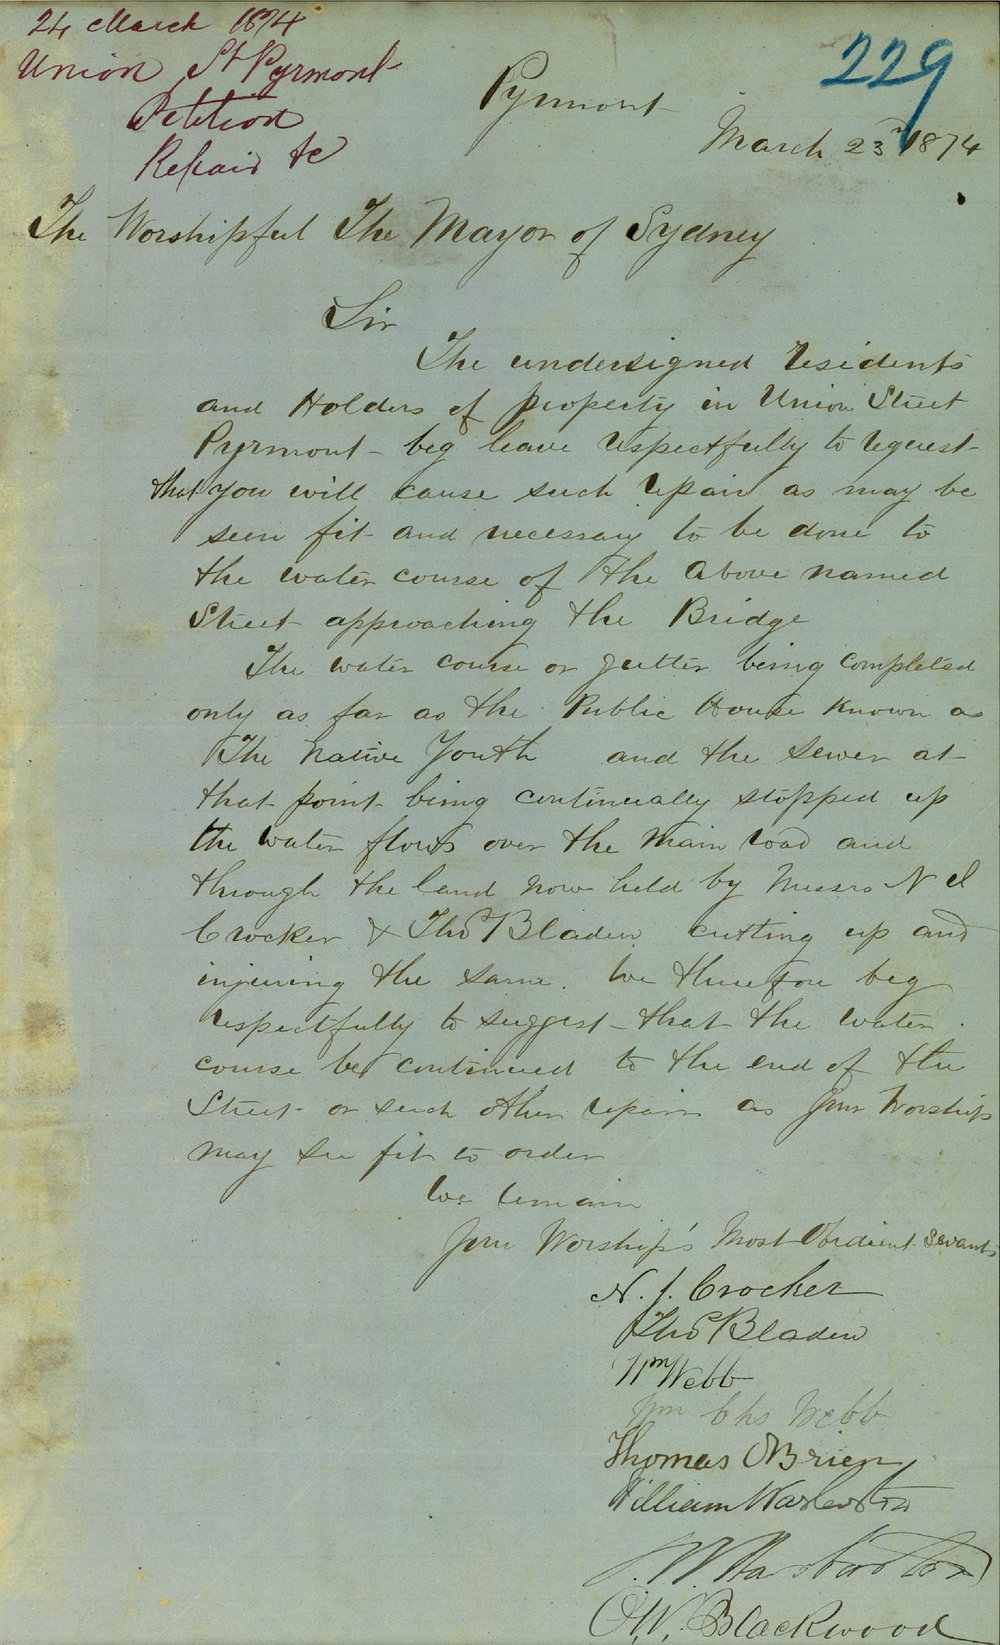 24 March 1874
Union St Pyrmont
Petition
Repair &c
229
Pyrmont
March 23rd 1874
The Worshipful The Mayor of Sydney
Sir
The undersigned residents
and Holders of property in Union Street
Pyrmont - beg leave respectfully to request -
that you will cause such repair as may be
seen fit and necessary to be done to
the water course of the above named
Street approaching the Bridge
The water course or gutter being completed
only as far as the Public House known as
The Native Youth and the sewer at
that point being continually stopped up
the water flows over the main road and
through the land now held by Messrs N J
Crocker & Thos Bladen cutting up and
injuring the same. We therefore beg
respectfully to suggest - that the water
course be continued to the end of the
Street - or such other repairs as your Worship
may see fit to order
We remain
Your Worship's Most Obedient Servants
N. J. Crocker
Thos Bladen
Wm Webb
Wm Chs Webb
Thomas OBrien
William
J. W.
O.W. Blackwood